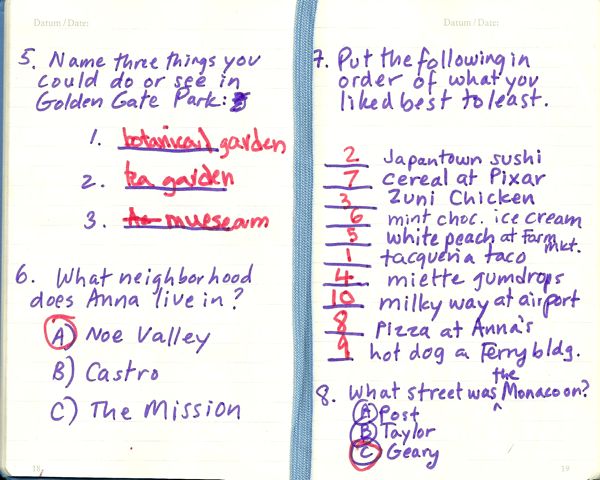 Datum / Date:
5. Name three things you
could do or see in
Golden Gate Park:
1. botanicail garden
2. tea garden
3. mueseam
6. What neighborhood
does Anna live in?
A) Noe Valley
B) Castro
C) The Mission
18
Datum / Date:
7. Put the following in
order of what you
liked best to least.
2 Japantown sushi
7 cereal at Pixar
3 Zuni Chicken
6 mint choc. ice cream
5 white peach at Farm Mkt.
1 tacqueria taco
4 miette gumdrops
10 milky way at airport
8 Pizza at Anna's
9 hot dog a Ferry bldg.
8. What street was the Monaco on?
A Post
B Taylor
C Geary
19